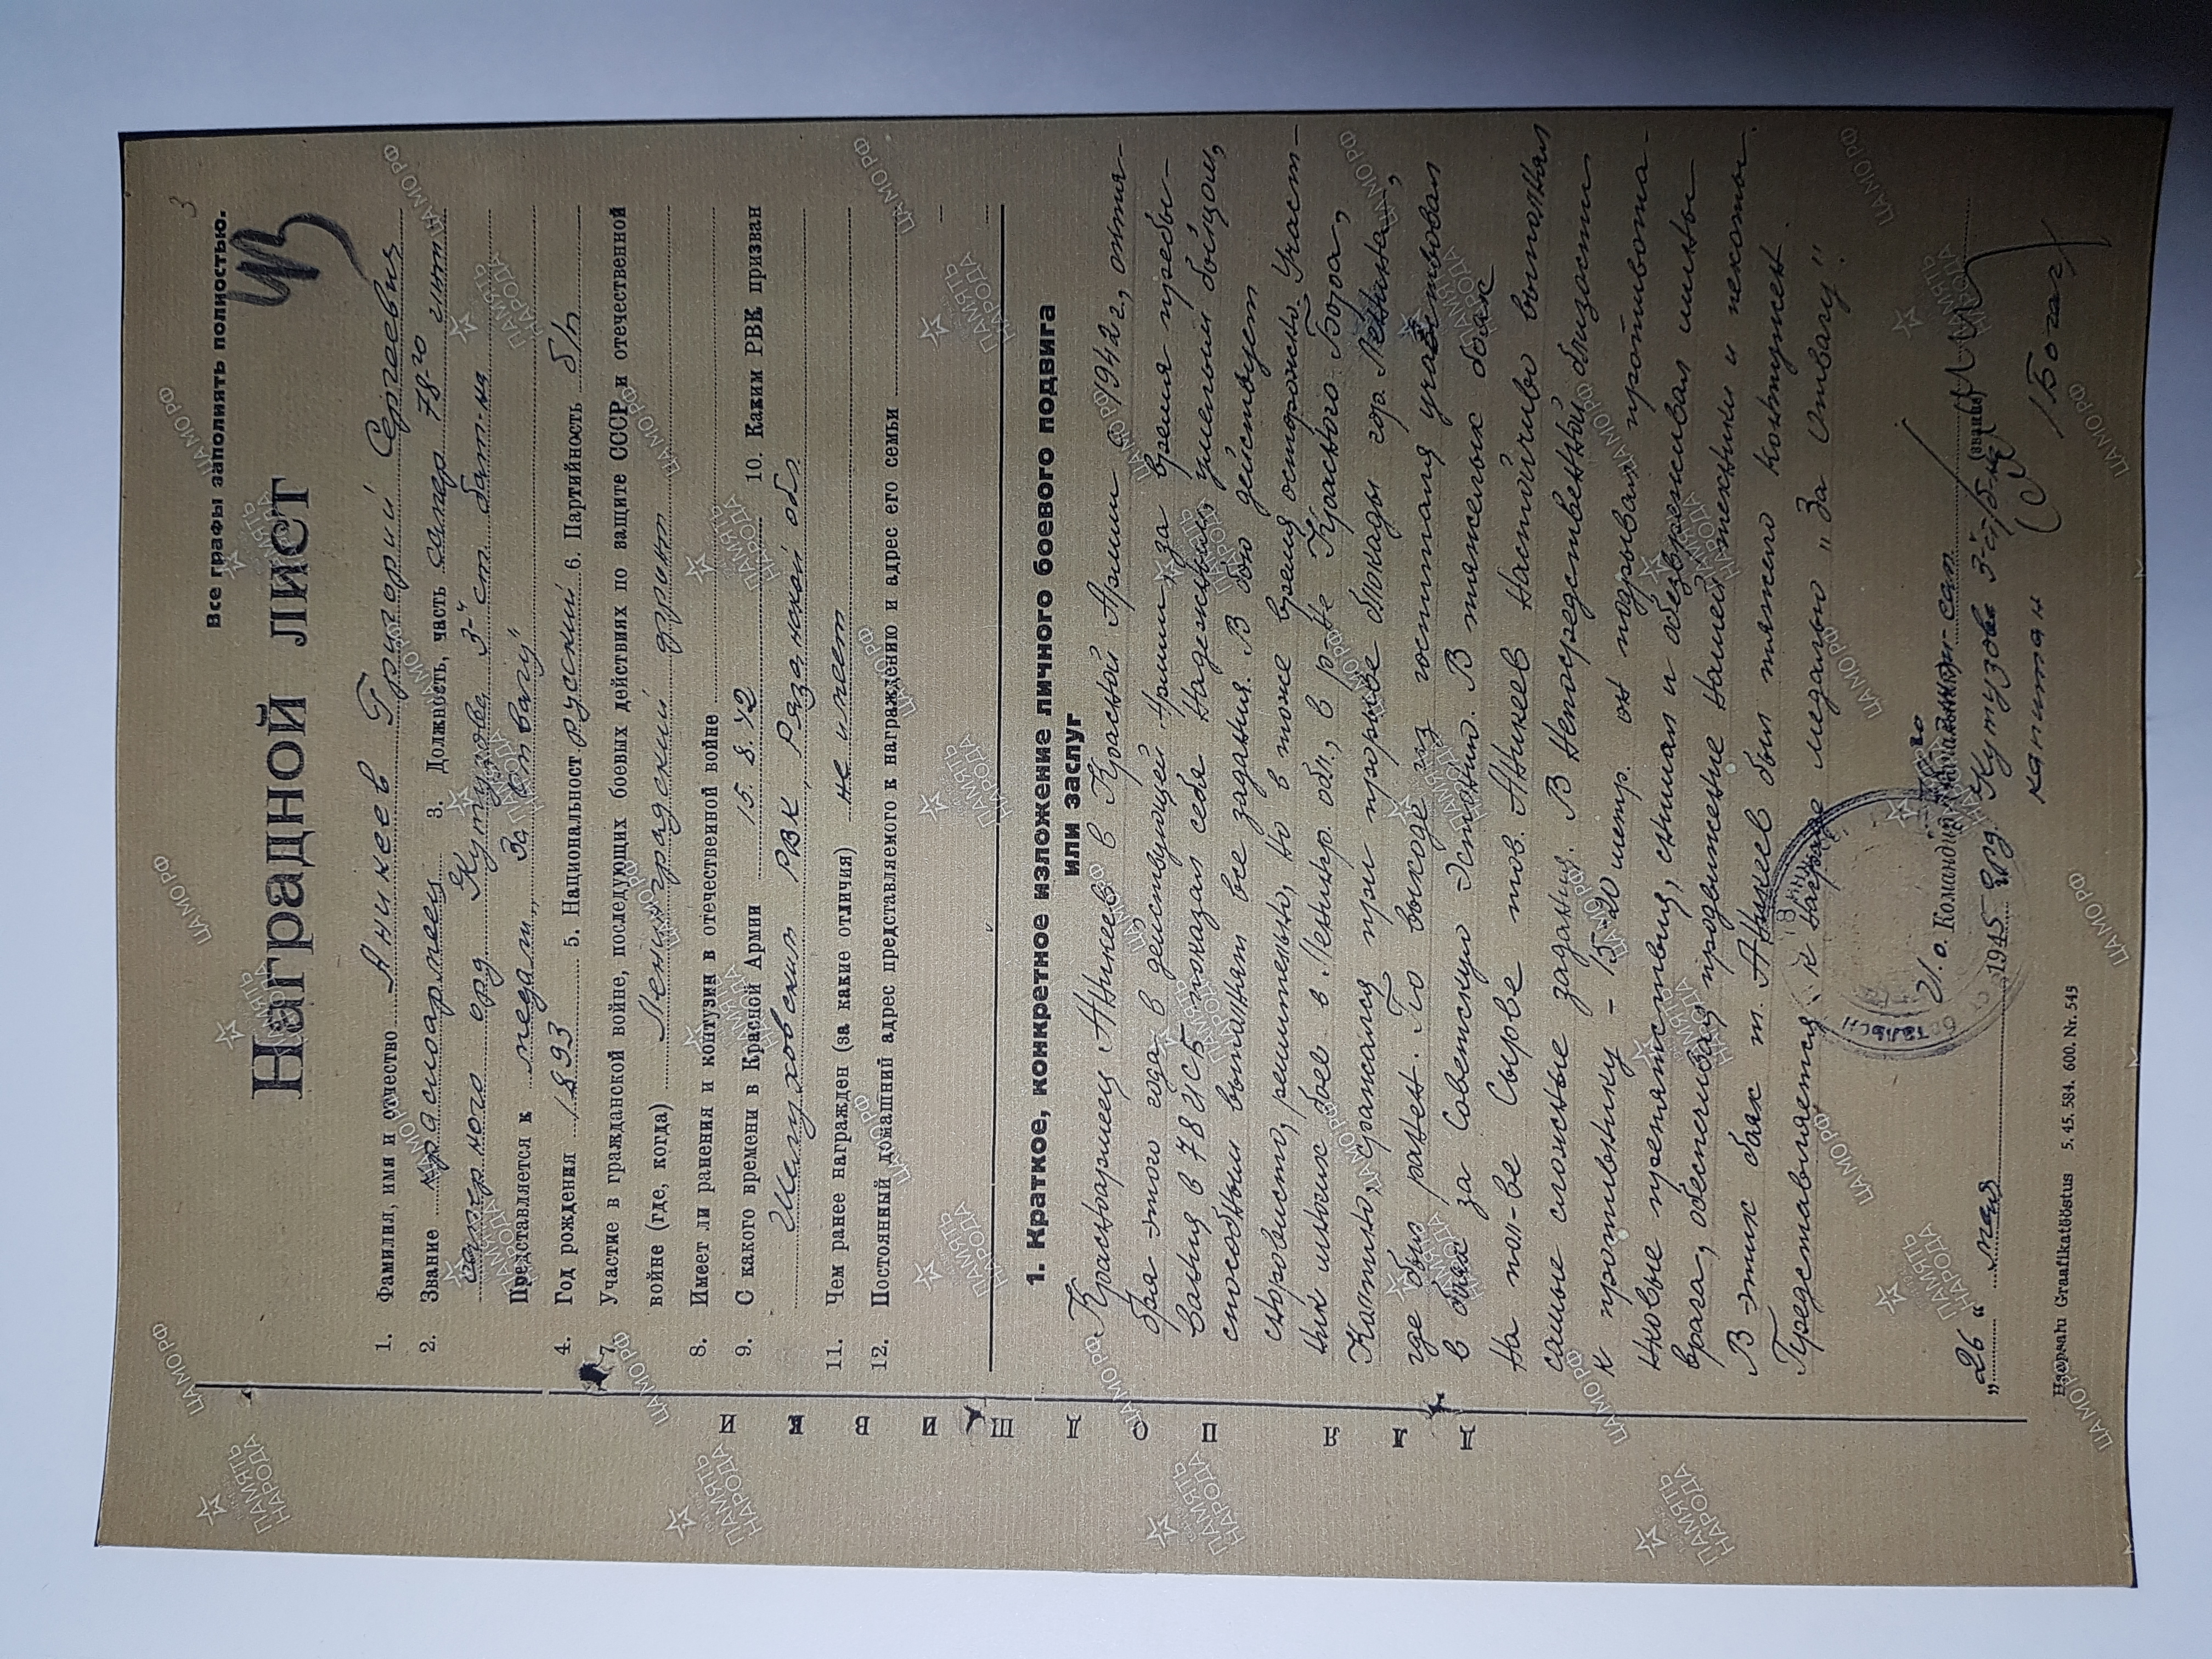 3
Все графы заполнять полностью.
Наградной лист
1. Фамилия, имя и отчество Аникеев Григорий Сергеевич
2. Звание красноармеец 3. Должность, часть сапер 78-го
саперного орд. Кутузова 3-й ст. бат-на
Представляется к медали „За Отвагу"
4. Год рождения 1893 5. Национальность русский 6. Партийность б/п
7. Участие в гражданской войне, последующих боевых действиях по защите СССР и отечественной
войне (где, когда) Ленинградский фронт
8. Имеет ли ранения и контузии в отечественной войне
9. С какого времени в Красной Армии 15.8.42 10. Каким РВК призван
РВК Рязанской обл.
11. Чем ранее награжден (за какие отличия) не имеет
12. Постоянный домашний адрес представляемого к награждению и адрес его семьи
1. Краткое, конкретное изложение личного боевого подвига
или заслуг
Красноармеец Аникеев в Красной Армии с 1942 г., октя-
бря этого года в действующей армии, за время пребы-
вания в 78 ИСБ показал себя надежным, умелым бойцом,
способным выполнят все задания. В бою действует
сноровисто, решительно, но в тоже время осторожно. Участ-
ник многих боев в Ленингр. обл., в р-не Красного Бора,
Колпино, сражался при прорыве блокады гор. Ленина,
где был ранен. По выходе из госпиталя участвовал
в боях за Советскую Эстонию. В тяжелых боях
на пол-ве Сырве тов. Аникеев настойчиво выполнял
самые сложные задания. В непосредственной близости
к противнику - 15-20 метр. он подрывал противопехот-
ные препятствия, снимал и обезвреживал мины
врага, обеспечивая продвижение нашей техники и пехоты.
В этих боях т. Аникеев был тяжело контужен.
Представляется к награде медалью „За Отвагу".
И. о. Командир 78 сап.
орд Кутузова 3-й ст. б-на
(звание)
„26" мая 1945
капитан
/Богаг/
Häopsahu Graafikatööstus 5. 45. 584. 600. Nr. 545
ДЛЯ ПОДШИВКИ
ПАМЯТЬ НАРОДА
ЦА МО РФ